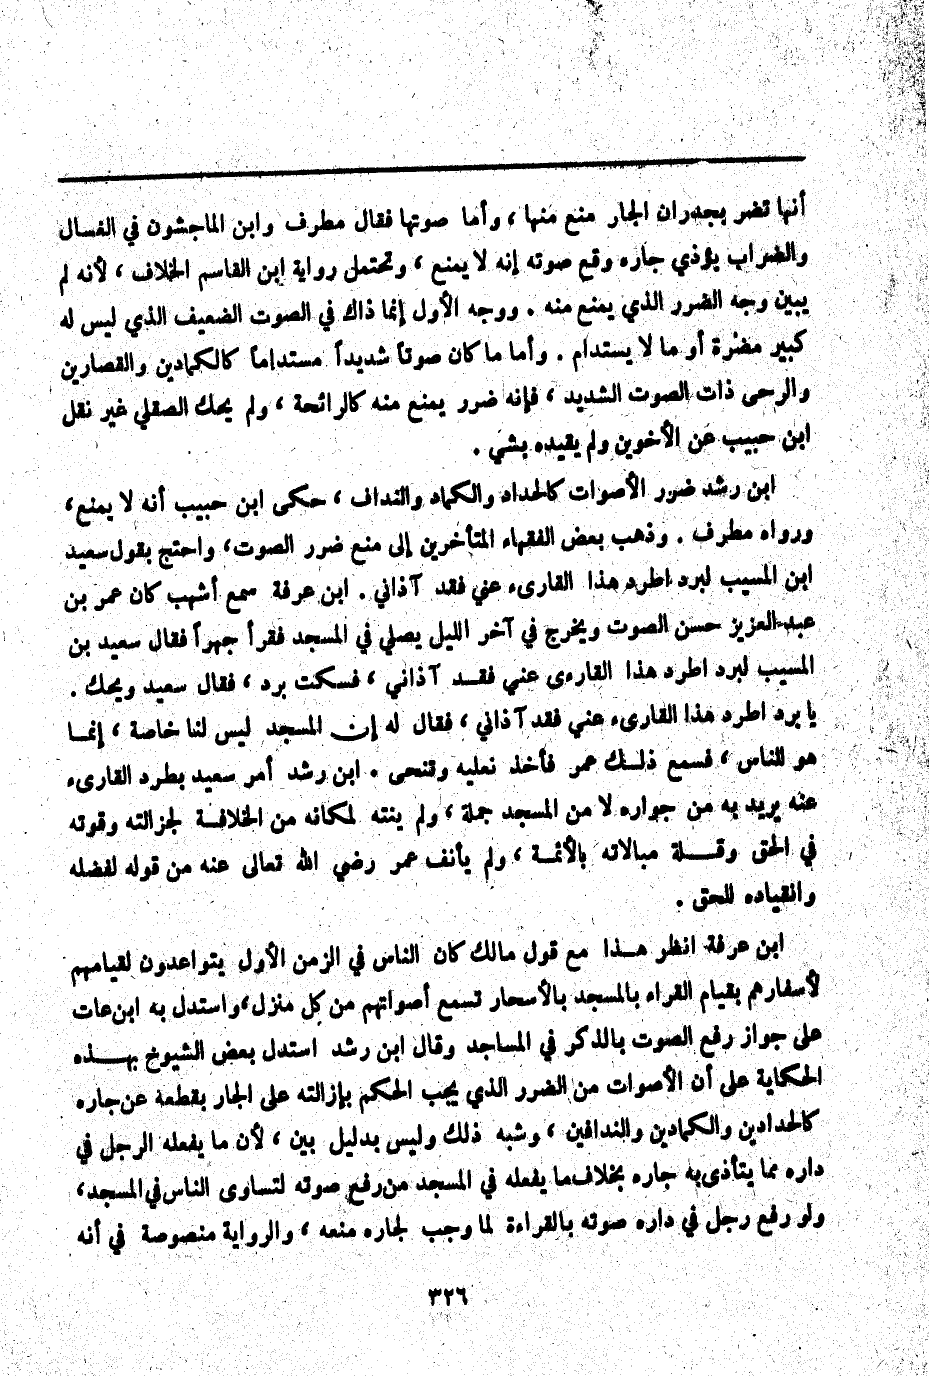 أنها تضر بجدران الجار منع منها ، وأما صوتها فقال مطرف وابن الماجشون في الغسال
والضراب يؤذي جاره وقع صوته إنه لا يمنع ، وتحتمل رواية ابن القاسم الخلاف ، لأنه لم
يبين وجه الضرر الذي يمنع منه . ووجه الأول إنما ذاك في الصوت الضعيف الذي ليس له
كبير مضرة أو ما لا يستدام . وأما ما كان صوتاً شديداً مستداماً كالكمادين والقصارين
والرحى ذات الصوت الشديد ، فإنه ضرر يمنع منه كالرائحة ، ولم يحك الصقلي غير نقل
ابن حبيب عن الأخوين ولم يقيده بشي .
ابن رشد ضرر الأصوات كالحداد والكماد والنداف ، حكى ابن حبيب أنه لا يمنع،
ورواه مطرف . وذهب بعض الفقهاء المتأخرين إلى منع ضرر الصوت، واحتج بقول سعيد
ابن المسيب لبرد اطرد هذا القارىء عني فقد آذاني . ابن عرفة سمع أشهب كان عمر بن
عبد العزيز حسن الصوت ويخرج في آخر الليل يصلي في المسجد فقرأ جهراً فقال سعيد بن
المسيب لبرد اطرد هذا القارىء عني فقد آذاني ، فسكت برد ، فقال سعيد ويحك .
يا برد اطرد هذا القارىء عني فقد آذاني ، فقال له إن المسجد ليس لنا خاصة ، إنما
هو للناس ، فسمع ذلك عمر فأخذ نعليه وتنحى . ابن رشد أمر سعيد بطرد القارىء
عنه يريد به من جواره لا من المسجد جملة ، ولم ينته لمكانه من الخلافة لجزالته وقوته
في الحق وقلة مبالاته بالأئمة ، ولم يأنف عمر رضي الله تعالى عنه من قوله لفضله
وانقياده للحق .
ابن عرفة انظر هذا مع قول مالك كان الناس في الزمن الأول يتواعدون لقيامهم
لأسفارهم بقيام القراء بالمسجد بالأسحار تسمع أصواتهم من كل منزل، واستدل به ابن عات
على جواز رفع الصوت بالذكر في المساجد وقال ابن رشد استدل بعض الشيوخ بهذه
الحكاية على أن الأصوات من الضرر الذي يجب الحكم بإزالته على الجار بقطعة عن جاره
كالحدادين والكمادين والندافين ، وشبه ذلك وليس بدليل بين ، لأن ما يفعله الرجل في
داره مما يتأذى به جاره بخلاف ما يفعله في المسجد من رفع صوته لتساوى الناس في المسجد،
ولو رفع رجل في داره صوته بالقراءة لما وجب لجاره منعه ، والرواية منصوصة في أنه
٣٢٦